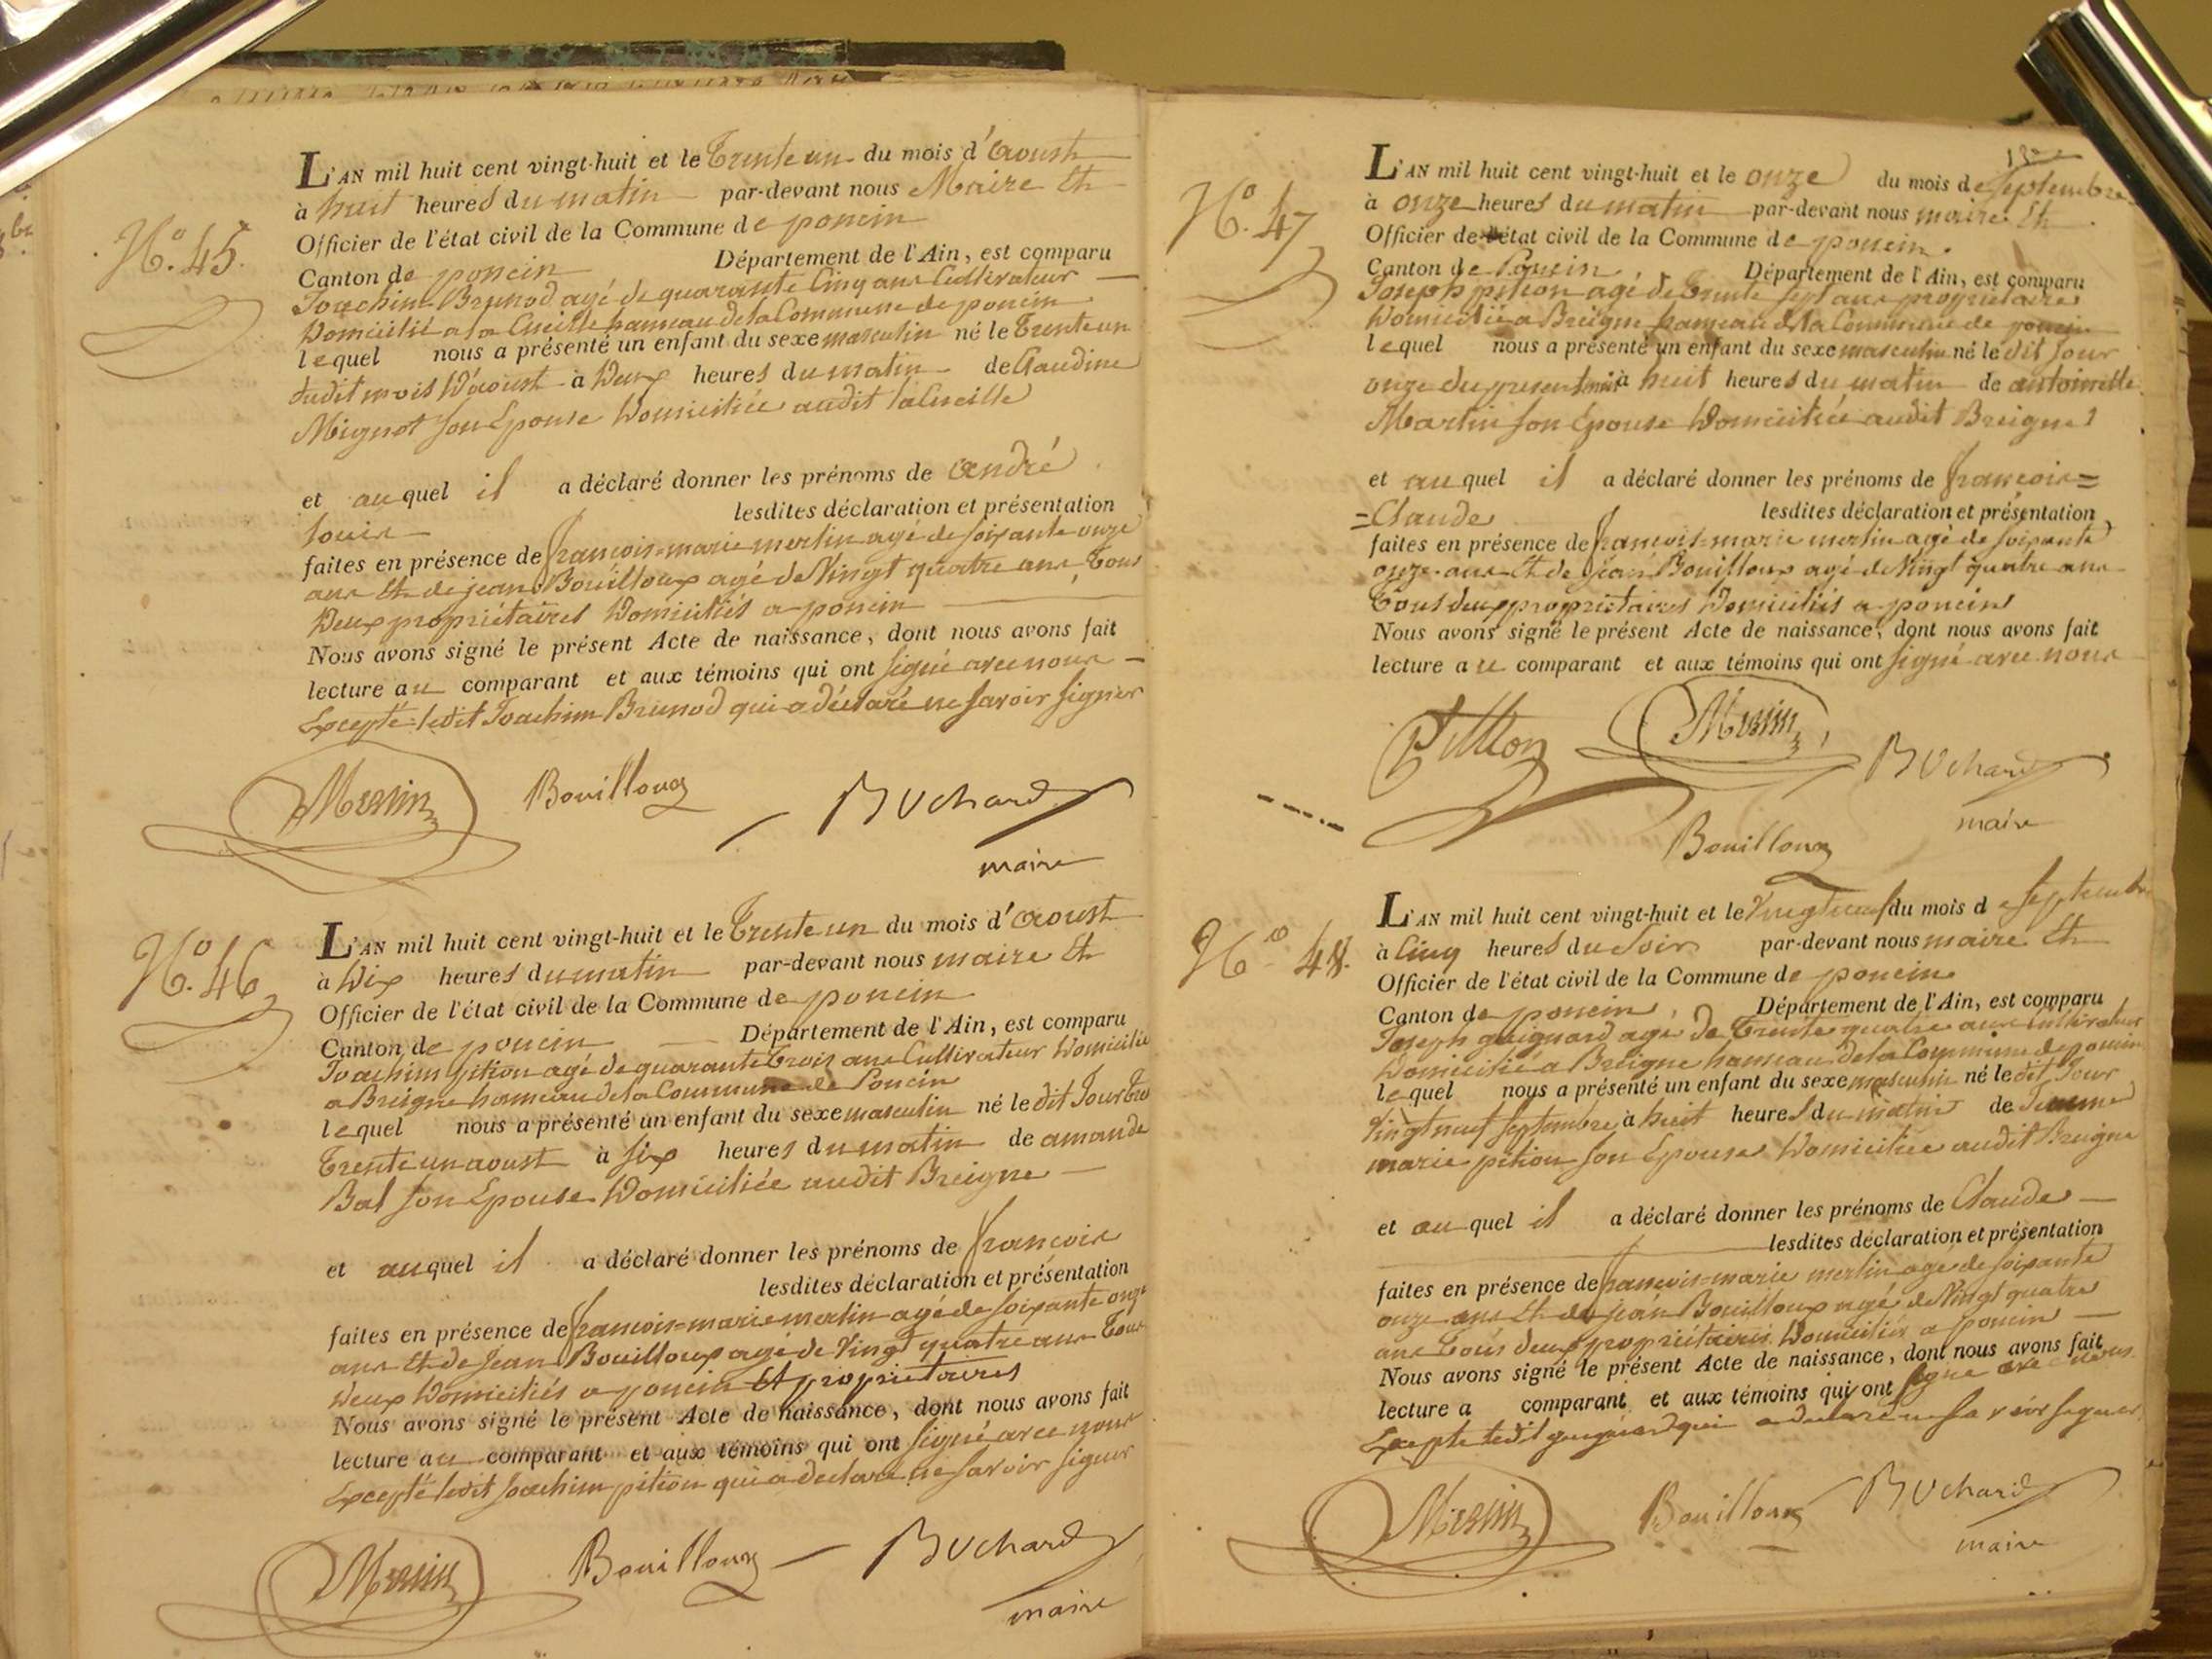 N.º 45.
L'AN mil huit cent vingt-huit et le Trente un du mois d'aoust
à huit heures du matin par-devant nous Maire Et
Officier de l'état civil de la Commune de poncin
Canton de poncin Département de l'Ain, est comparu
Joachim Brunod agé de quarante Cinq ans Cultivateur
Domicilié a la Cueille hameau de la Commune de poncin
lequel nous a présenté un enfant du sexe masculin né le Trente un
dudit mois D'aoust à Deux heures du matin de Claudine
Mignot son Epouse Domiciliée audit la Cueille
et auquel il a déclaré donner les prénoms de andré
louis lesdites déclaration et présentation
faites en présence de françois=marie merlin agé de soixante onze
ans Et de jean Bouilloux agé de Vingt quatre ans Tous
Deux propriétaires Domiciliés a poncin
Nous avons signé le présent Acte de naissance, dont nous avons fait
lecture au comparant et aux témoins qui ont signé avec nous
Excepté ledit Joachim Brunod qui a déclaré ne savoir signer
Merlin Bouilloux Buchard
maire
N.º 46
L'AN mil huit cent vingt-huit et le Trente un du mois d'aoust
à Dix heures du matin par-devant nous maire Et
Officier de l'état civil de la Commune de poncin
Canton de poncin Département de l'Ain, est comparu
Joachim pition agé de quarante Trois ans Cultivateur Domicilié
a Breigne hameau de la Commune de Poncin
lequel nous a présenté un enfant du sexe masculin né le dit Jour
Trente un aoust à six heures du matin de amande
Bal son Epouse Domiciliée audit Breigne
et auquel il a déclaré donner les prénoms de françois
lesdites déclaration et présentation
faites en présence de françois=marie merlin agé de soixante onze
ans Et de Jean Bouilloux agé de Vingt quatre ans Tous
Deux Domiciliés a poncin Et propriétaires
Nous avons signé le présent Acte de naissance, dont nous avons fait
lecture au comparant et aux témoins qui ont signé avec nous
Excepté ledit Joachim pition qui a déclaré ne savoir signer
Merlin Bouilloux Buchard
maire
N.º 47
L'AN mil huit cent vingt-huit et le onze du mois de septembre
à onze heures du matin par-devant nous maire Et
Officier de l'état civil de la Commune de poncin.
Canton de Poncin Département de l'Ain, est comparu
Joseph pition agé de Trente sept ans propriétaire
Domicilié a Breigne hameau de la Commune de poncin
lequel nous a présenté un enfant du sexe masculin né le dit Jour
onze du present mois à huit heures du matin de antoinette
Martin son Epouse Domiciliée audit Breigne
et auquel il a déclaré donner les prénoms de françois=
=Claude lesdites déclaration et présentation
faites en présence de françois=marie merlin agé de soixante
onze ans Et de Jean Bouilloux agé de Vingt quatre ans
Tous deux propriétaires Domiciliés a poncin
Nous avons signé le présent Acte de naissance, dont nous avons fait
lecture au comparant et aux témoins qui ont signé avec nous
Pition Merlin Buchard
maire
Bouilloux
N.º 48.
L'AN mil huit cent vingt-huit et le Vingt neuf du mois de septembre
à Cinq heures du soir par-devant nous maire Et
Officier de l'état civil de la Commune de poncin
Canton de poncin Département de l'Ain, est comparu
Joseph guignard agé de Trente quatre ans cultivateur
Domicilié a Breigne hameau de la Commune de poncin
lequel nous a présenté un enfant du sexe masculin né le dit Jour
Vingt neuf septembre à huit heures du matin de Jeanne
marie pition son Epouse Domiciliée audit Breigne
et auquel il a déclaré donner les prénoms de Claude
lesdites déclaration et présentation
faites en présence de françois=marie merlin agé de soixante
onze ans Et de Jean Bouilloux agé de Vingt quatre
ans Tous deux propriétaires Domiciliés a poncin
Nous avons signé le présent Acte de naissance, dont nous avons fait
lecture a comparant et aux témoins qui ont signé avec nous
Excepté ledit guignard qui a declaré ne savoir signer
Merlin Bouilloux Buchard
maire